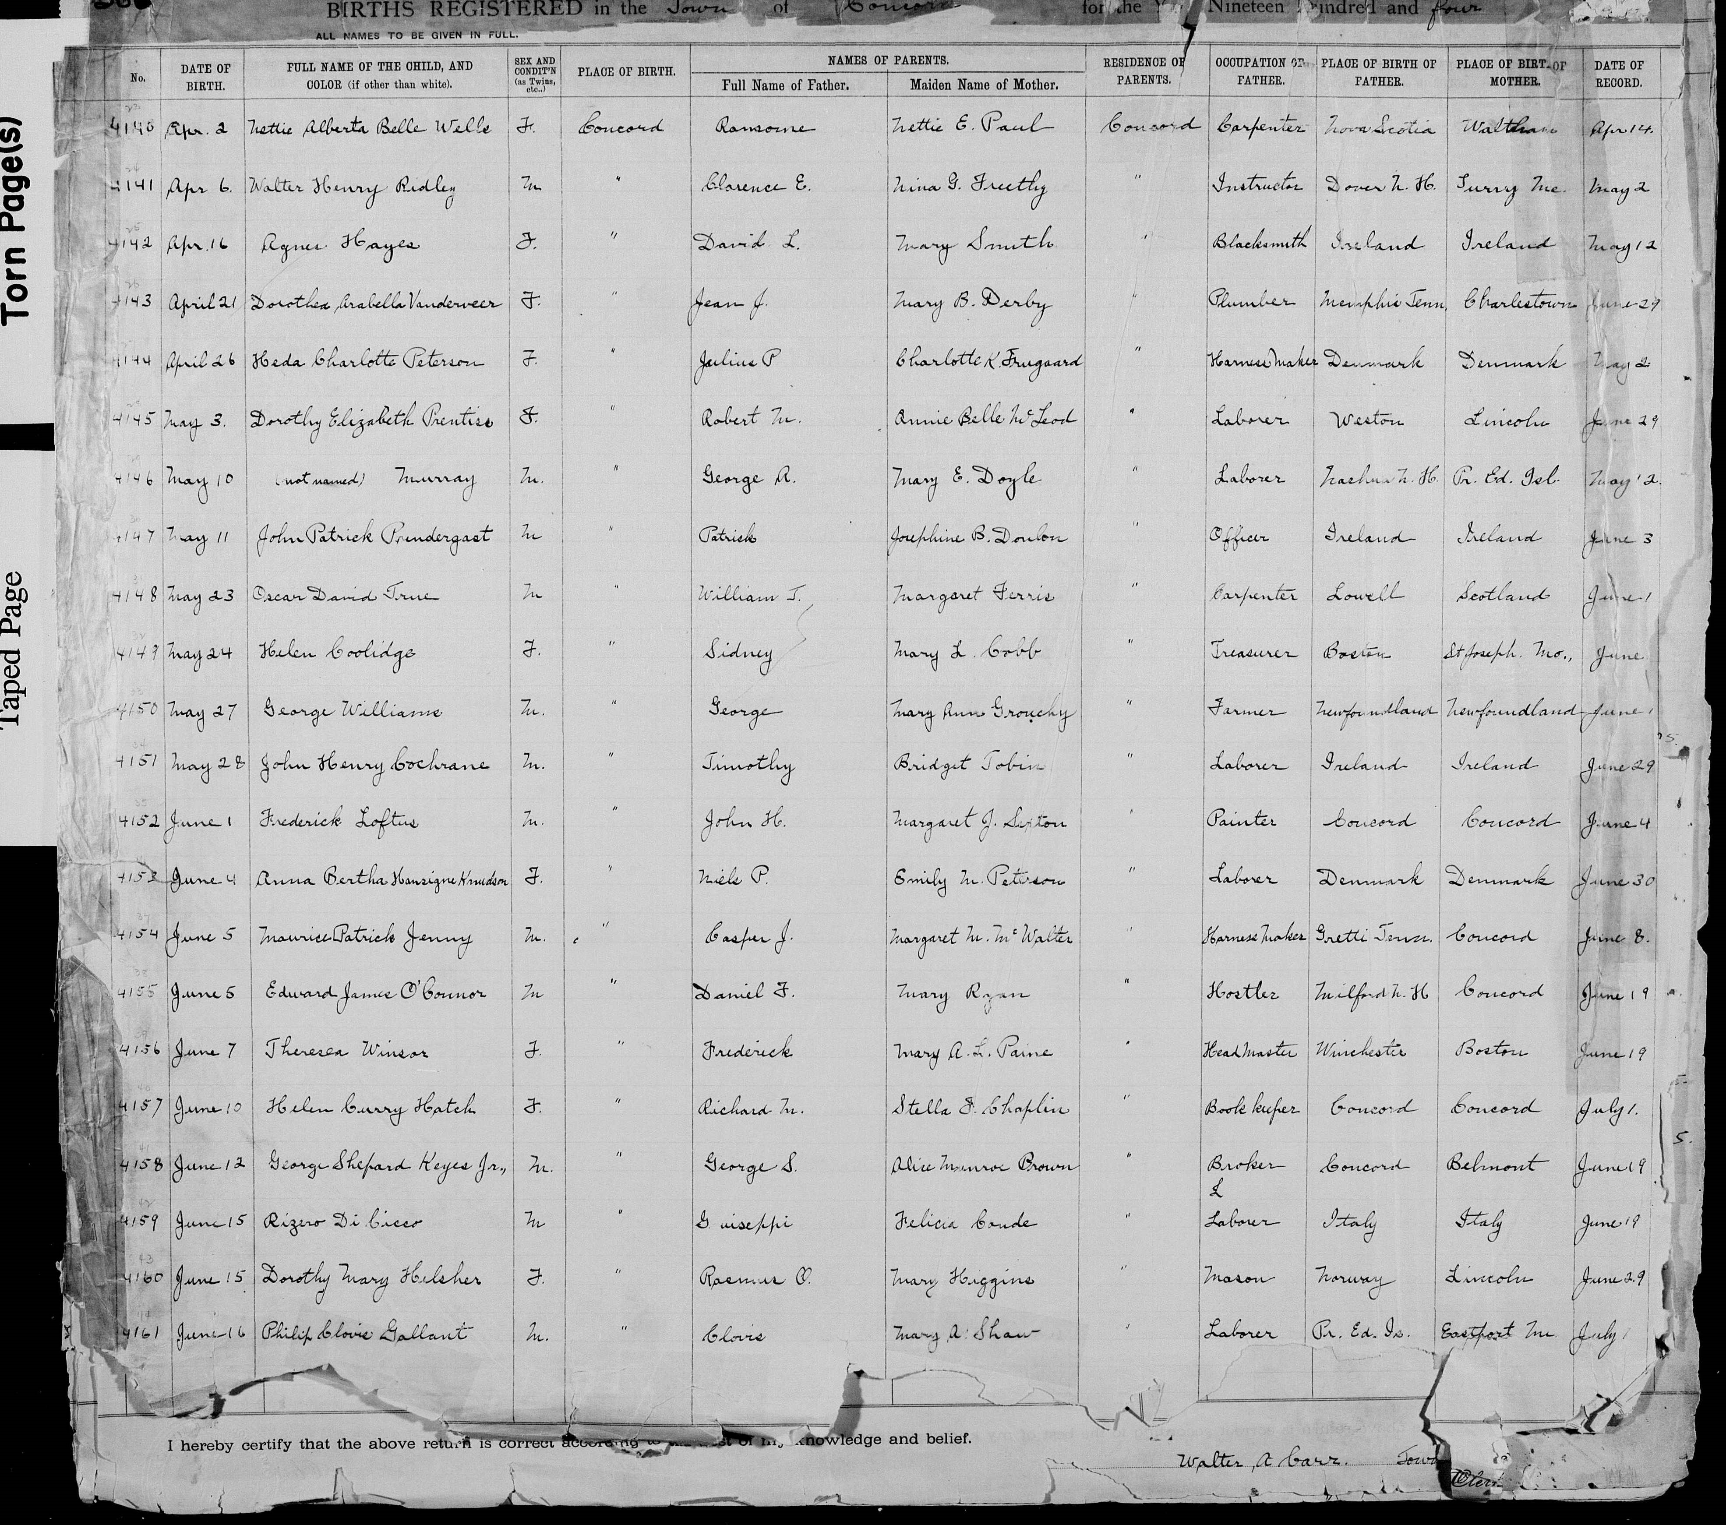 BIRTHS REGISTERED in the Town of Concord for the Year Nineteen Hundred and four
ALL NAMES TO BE GIVEN IN FULL.
No. DATE OF BIRTH. FULL NAME OF THE CHILD, AND COLOR (if other than white). SEX AND CONDIT'N (as Twins, etc.,) PLACE OF BIRTH. NAMES OF PARENTS. Full Name of Father. Maiden Name of Mother. RESIDENCE OF PARENTS. OCCUPATION OF FATHER. PLACE OF BIRTH OF FATHER. PLACE OF BIRTH OF MOTHER. DATE OF RECORD.
4140 Apr. 2 Nettie Alberta Belle Wells F. Concord Ransome Nettie E. Paul Concord Carpenter Nova Scotia Waltham Apr 14.
4141 Apr 6. Walter Henry Ridley M " Clarence E. Nina G. Freethy " Instructor Dover N. H. Surry Me. May 2
4142 Apr. 16 Agnes Hayes F. " David L. Mary Smith " Blacksmith Ireland Ireland May 12
4143 April 21 Dorothea Arabella Vanderveer F. " Jean J. Mary B. Derby " Plumber Memphis Tenn, Charlestown June 29
4144 April 26 Heda Charlotte Peterson F. " Julius P Charlotte K. Frugaard " Harness Maker Denmark Denmark May 2
4145 May 3. Dorothy Elizabeth Prentiss F. " Robert M. Annie Belle McLeod " Laborer Weston Lincoln June 29
4146 May 10 (not named) Murray M. " George A. Mary E. Doyle " Laborer Nashua N. H. Pr. Ed. Isl. May 12.
4147 May 11 John Patrick Prendergast M " Patrick Josephine B. Donlon " Officer Ireland Ireland June 3
4148 May 23 Oscar David True M " William T. Margaret Ferris " Carpenter Lowell Scotland June 1
4149 May 24 Helen Coolidge F. " Sidney Mary L. Cobb " Treasurer Boston St Joseph. Mo., June
4150 May 27 George Williams M. " George Mary Ann Grouchy " Farmer Newfoundland Newfoundland June 1
4151 May 28 John Henry Cochrane M. " Timothy Bridget Tobin " Laborer Ireland Ireland June 29
4152 June 1 Frederick Loftus M. " John H. Margaret J. Sexton " Painter Concord Concord June 4
4153 June 4 Anna Bertha Hansigne Knudson F. " Niels P. Emily M. Peterson " Laborer Denmark Denmark June 30
4154 June 5 Maurice Patrick Jenny M. " Casper J. Margaret M. McWalter " Harness Maker Concord June 8.
4155 June 5 Edward James O'Connor M " Daniel F. Mary Ryan " Hostler Milford N. H Concord June 19
4156 June 7 Theresa Winsor F. " Frederick Mary A. L. Paine " Head Master Winchester Boston June 19
4157 June 10 Helen Curry Hatch F. " Richard M. Stella F. Chaplin " Book keeper Concord Concord July 1.
4158 June 12 George Shepard Keyes Jr., M. " George S. Alice Munroe Brown " Broker Concord Belmont June 19
L
4159 June 15 Rizero Di Cicco M " Guiseppi Felicia Conde " Laborer Italy Italy June 19
4160 June 15 Dorothy Mary Hilsher F. " Rasmus O. Mary Higgins " Mason Norway Lincoln June 29
4161 June 16 Philip Clovis Gallant M. " Clovis Mary A. Shaw " Laborer Pr. Ed. Is. Eastport Me. July 1
I hereby certify that the above return is correct according to the best of my knowledge and belief.
Walter A Carr. Town Clerk
Torn Page(s)
Taped Page